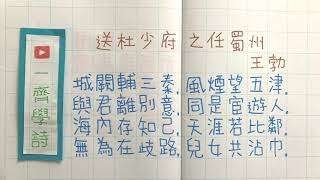 送杜少府 之任蜀州
王勃
城闕輔三秦，風煙望五津．
與君離別意，同是宦遊人．
海內存知己，天涯若比鄰．
無為在歧路，兒女共沾巾．
一齊學詩